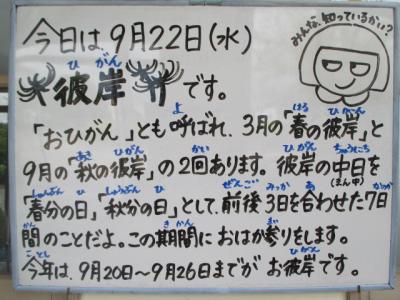 今日は、9月22日(水)
みんな、知っているかい?
ひがん
彼岸です。
よ はる ひがん
「おひがん」とも呼ばれ、3月の「春の彼岸」と
あき ひがん かい ひがん ちゅうにち
9月の「秋の彼岸」の2回あります。彼岸の中日を
(まん中)
しゅんぶん ひ しゅうぶん ひ ぜんご みっか あ
「春分の日」「秋分の日」として、前後3日を合わせた7日
かん きかん まい
間のことだよ。この期間におはか参りをします。
ことし ひがん
今年は、9月20日〜9月26日までがお彼岸です。